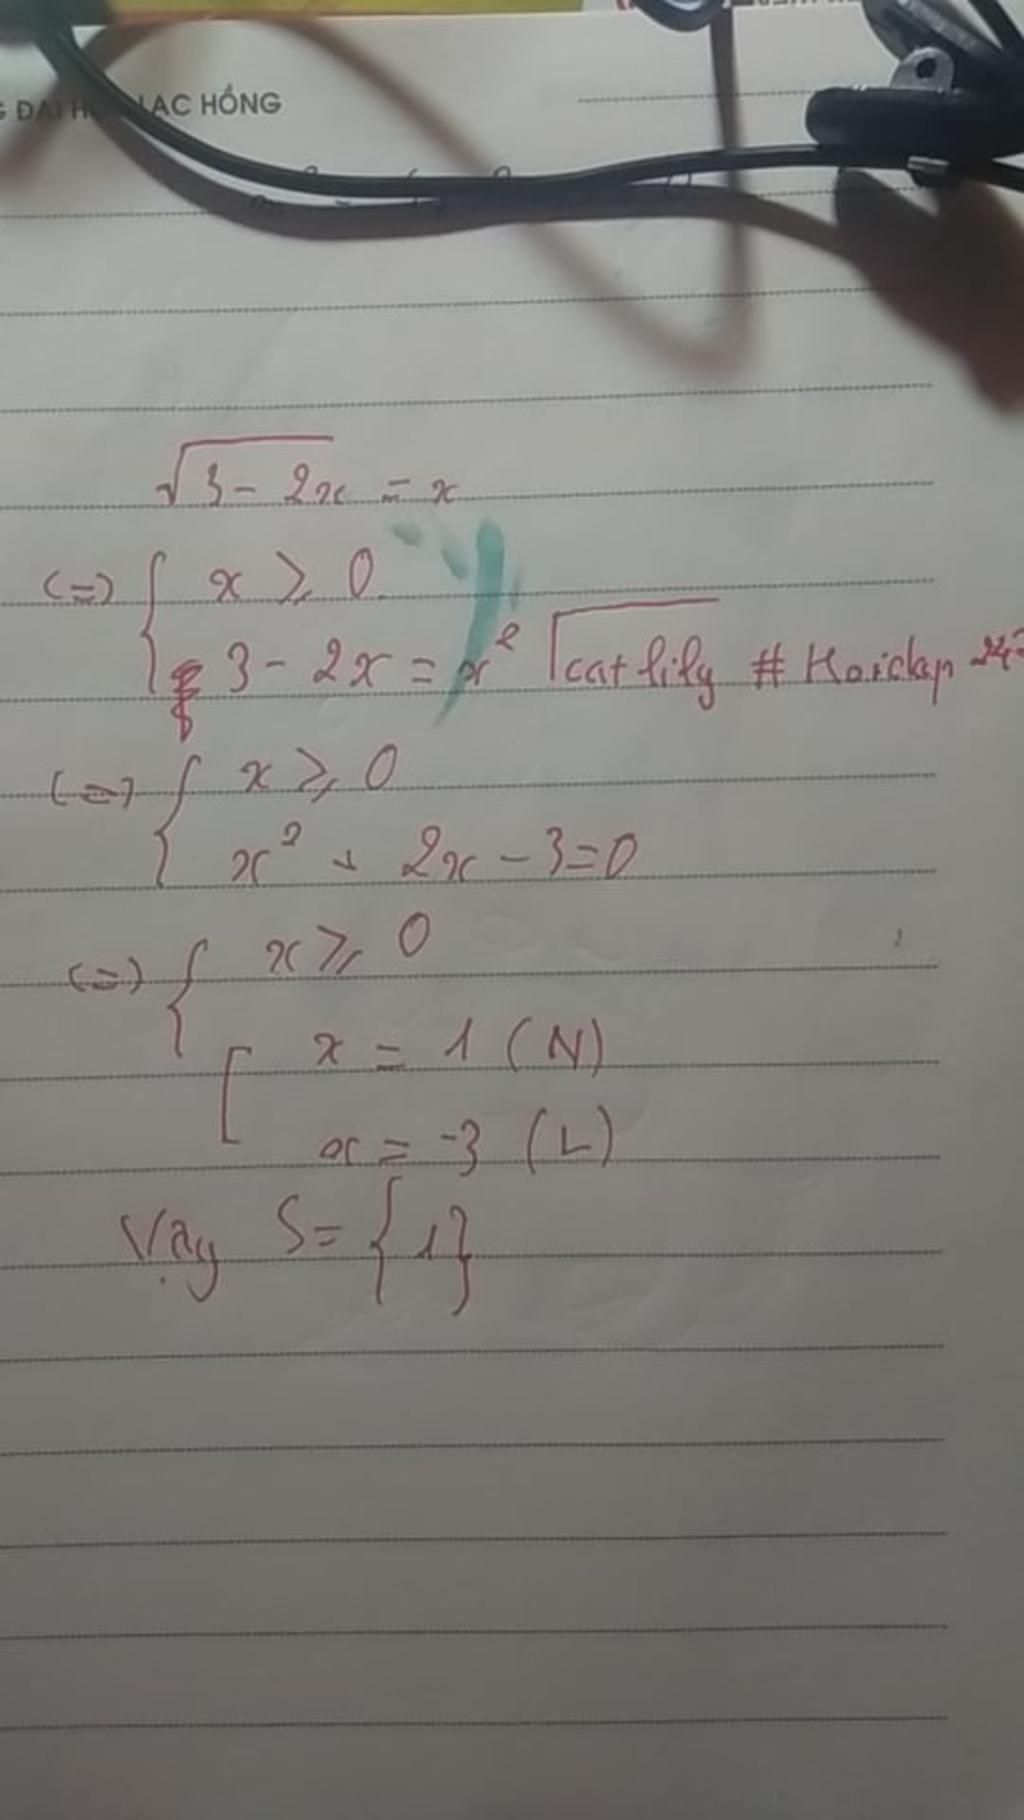 LẠC HỒNG
√(3 - 2x) = x
<=> { x ≥ 0
3 - 2x = x² catlily # Hoidap
<=> { x ≥ 0
x² + 2x - 3 = 0
<=> { x ≥ 0
[ x = 1 (N)
x = -3 (L)
Vậy S = {1}